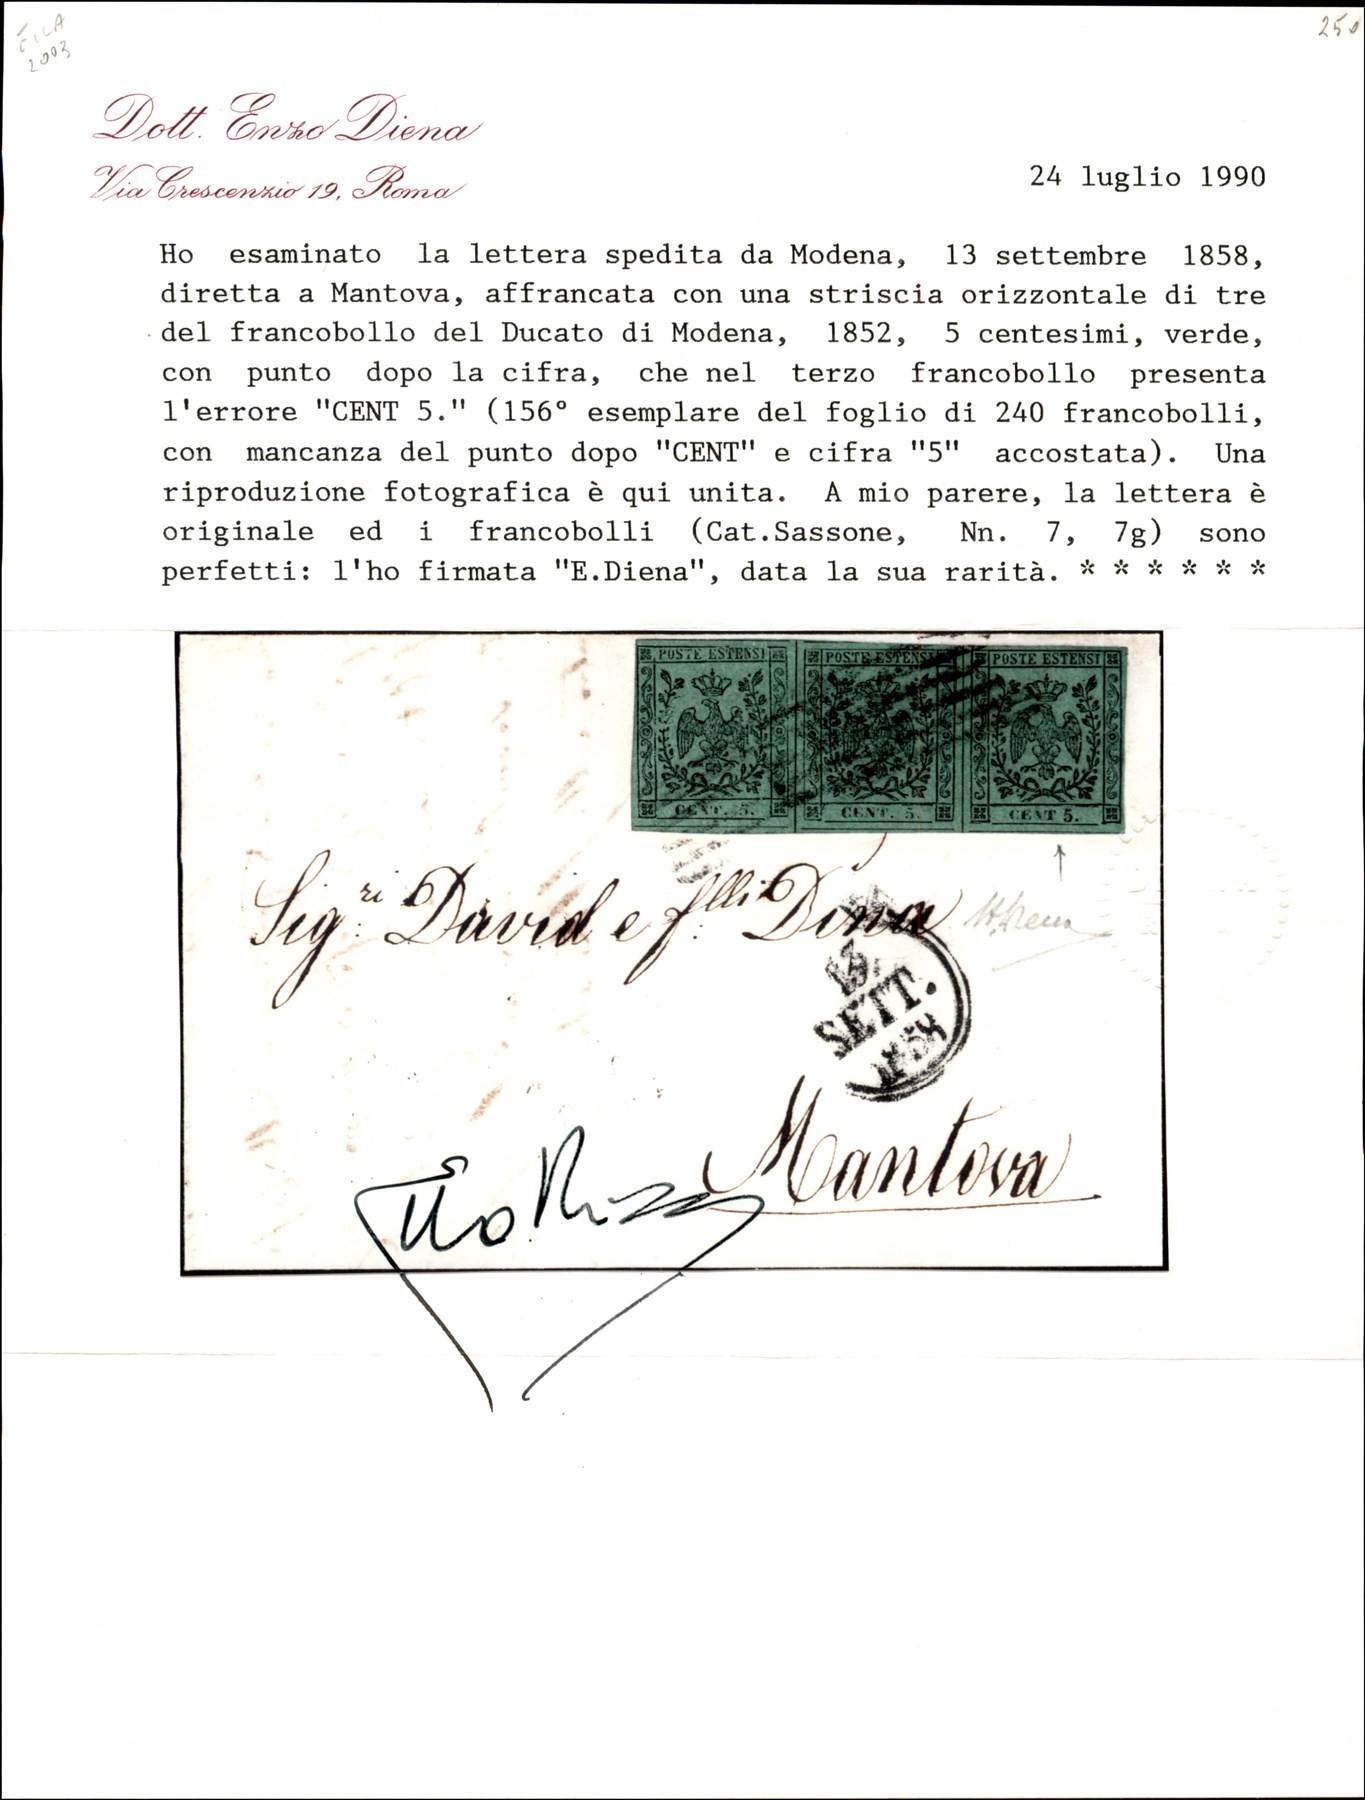 FILA
2003
250
Dott. Enzo Diena
Via Crescenzio 19, Roma
24 luglio 1990
Ho esaminato la lettera spedita da Modena, 13 settembre 1858,
diretta a Mantova, affrancata con una striscia orizzontale di tre
del francobollo del Ducato di Modena, 1852, 5 centesimi, verde,
con punto dopo la cifra, che nel terzo francobollo presenta
l'errore "CENT 5." (156° esemplare del foglio di 240 francobolli,
con mancanza del punto dopo "CENT" e cifra "5" accostata). Una
riproduzione fotografica è qui unita. A mio parere, la lettera è
originale ed i francobolli (Cat.Sassone, Nn. 7, 7g) sono
perfetti: l'ho firmata "E.Diena", data la sua rarità. * * * * * *
POSTE ESTENSI POSTE ESTENSI POSTE ESTENSI
CENT. 5. CENT. 5. CENT 5.
Sig.ri David e f.lli Dina
13
SETT.
1858
Mantova